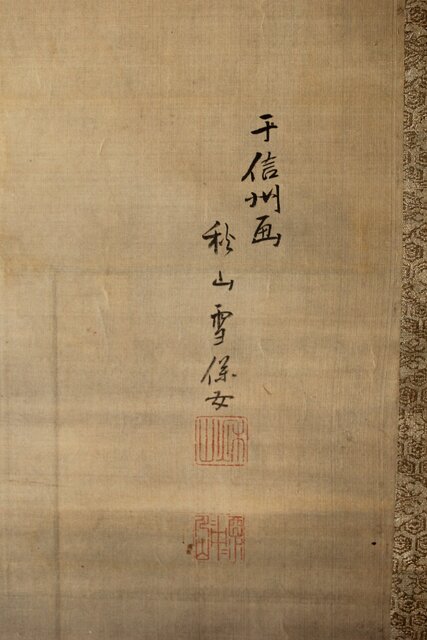 于信州画
秋山雪保女